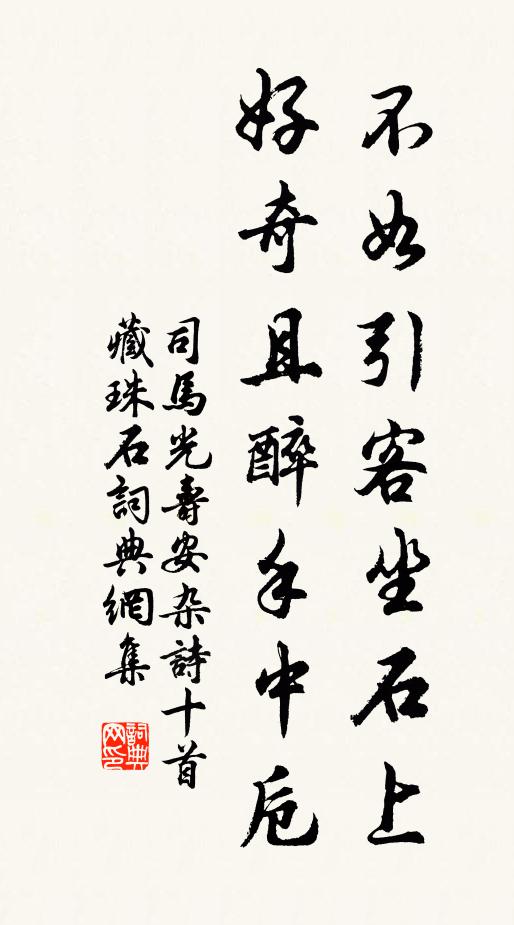 不如引客坐石上
好奇且醉手中卮
司馬光壽安杂詩十首
藏珠石詞典網集
詞典网印